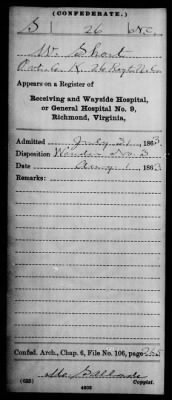 (CONFEDERATE.)
S 26 N.C.
Wm Short
Co. K, 26 Regt N.C.
Appears on a Register of
Receiving and Wayside Hospital,
or General Hospital No. 9,
Richmond, Virginia,
Admitted July 21, 1863
Disposition Winder No. 3
Date 1863
Remarks:
Confed. Arch., Chap. 6, File No. 106, page
(635) Copyist.